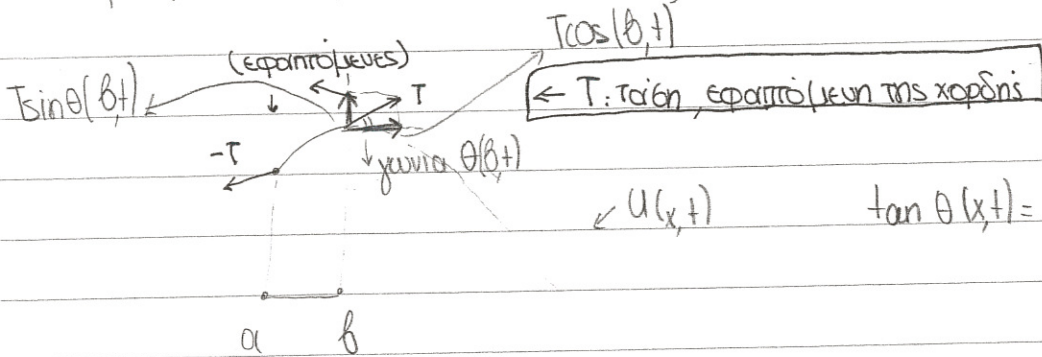 Tcos(β,t)
(εφαπτόμενες)
Tsinθ(β,t)
T
← T: τάση, εφαπτόμενη της χορδής
-T
γωνία θ(β,t)
u(x,t)
tan θ(x,t)=
α β